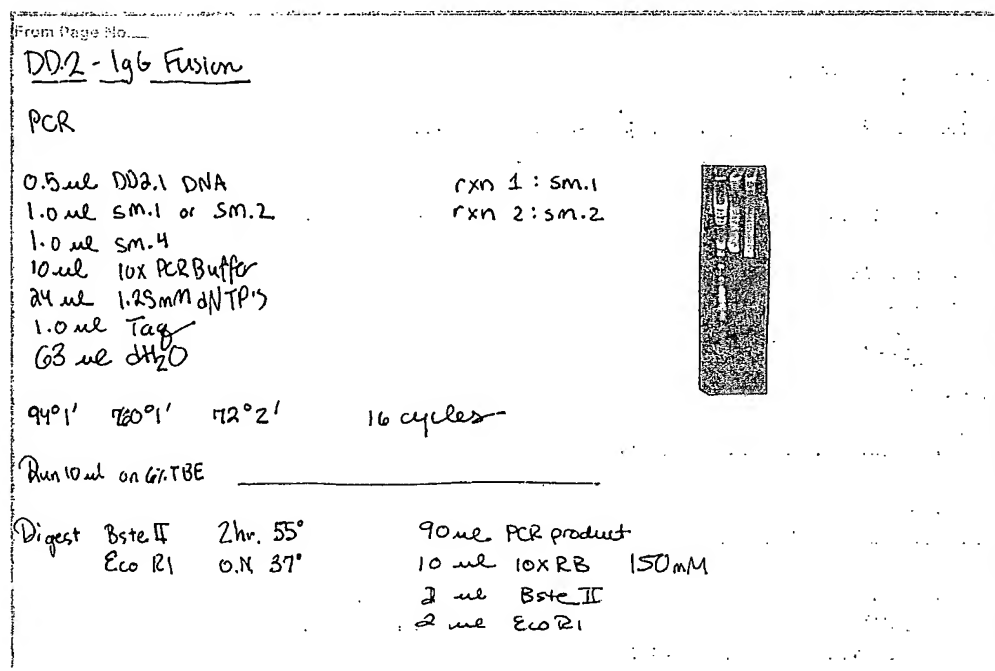 From Page No.
DD.2 - IgG Fusion
PCR
0.5 ul DD2.1 DNA
1.0 ul sm.1 or sm.2
1.0 ul sm.4
10 ul 10x PCR Buffer
24 ul 1.25mM dNTP's
1.0 ul Taq
63 ul dH2O
rxn 1 : sm.1
rxn 2 : sm.2
94°1' 60°1' 72°2' 16 cycles
Run 10 ul on 6% TBE
Digest BsteII 2hr. 55°
Eco R1 O.N 37°
90 ul PCR product
10 ul 10xRB 150mM
2 ul BsteII
2 ul EcoR1